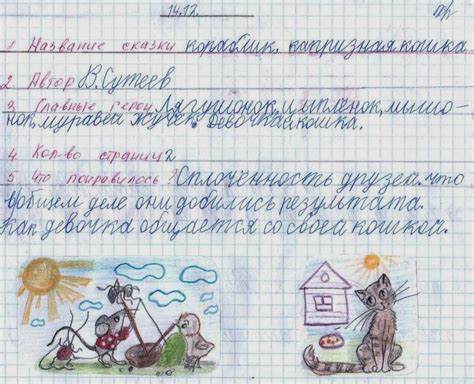 14.12.
1 Название сказки кораблик, капризная кошка
2 Автор В.Сутеев
3 Главные герои Лягушонок, цыпленок, мышо-
нок, муравей жучек. Девочка и кошка.
4 Кол-во страниц 2
5 Что понравилось? Сплоченность друзей. что
в общем деле они добились результата.
Как девочка общается со своей кошкой.